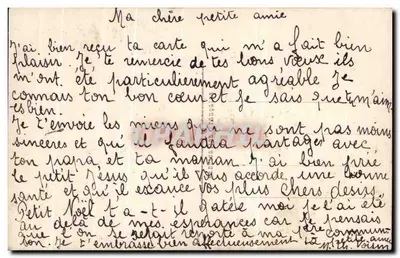 Ma chère petite amie
J'ai bien reçu ta carte qui m'a fait bien
plaisir. Je te remercie de tes bons vœux ils
m'ont été particulièrement agréable Je
connais ton bon cœur et je sais que tu m'aimes
bien.
Je t'envoie les miens qui ne sont pas moins
sincères et qu'il faudra partager avec
ton papa et ta maman. J'ai bien prié
le petit Jésus qu'il vous accorde une bonne
santé et qu'il exauce vos plus chers désirs.
Petit Noël t-a-t-il gatée moi je l'ai été
au delà de mes espérances car je pensais
que l'on se serait reporté à ma 1ère commun-
ion. Je t'embrasse bien affectueusement Ta petite amie